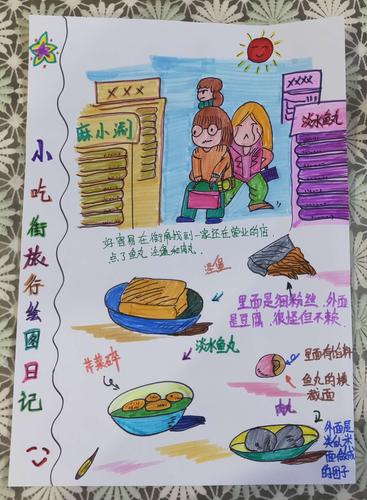 小吃街旅行绘图日记
XXX
麻小涮
XXXX
淡水鱼丸
好容易在街角找到一家还在营业的店.
点了鱼丸 逗鱼和肉丸.
逗鱼
里面是细粉丝.外面
是豆腐.很怪但不难
淡水鱼丸
芹菜碎
里面有馅料
鱼丸的横
截面
肉丸
外面是
类似米
面做成
的团子